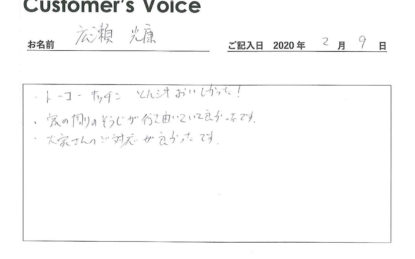 Customer's Voice
お名前 広瀬 光康
ご記入日 2020年 2月9日
・トーコーキッチン とん汁おいしかった!
・家の周りのそうじが行き届いていて良かったです。
・大家さんのご対応が良かったです。